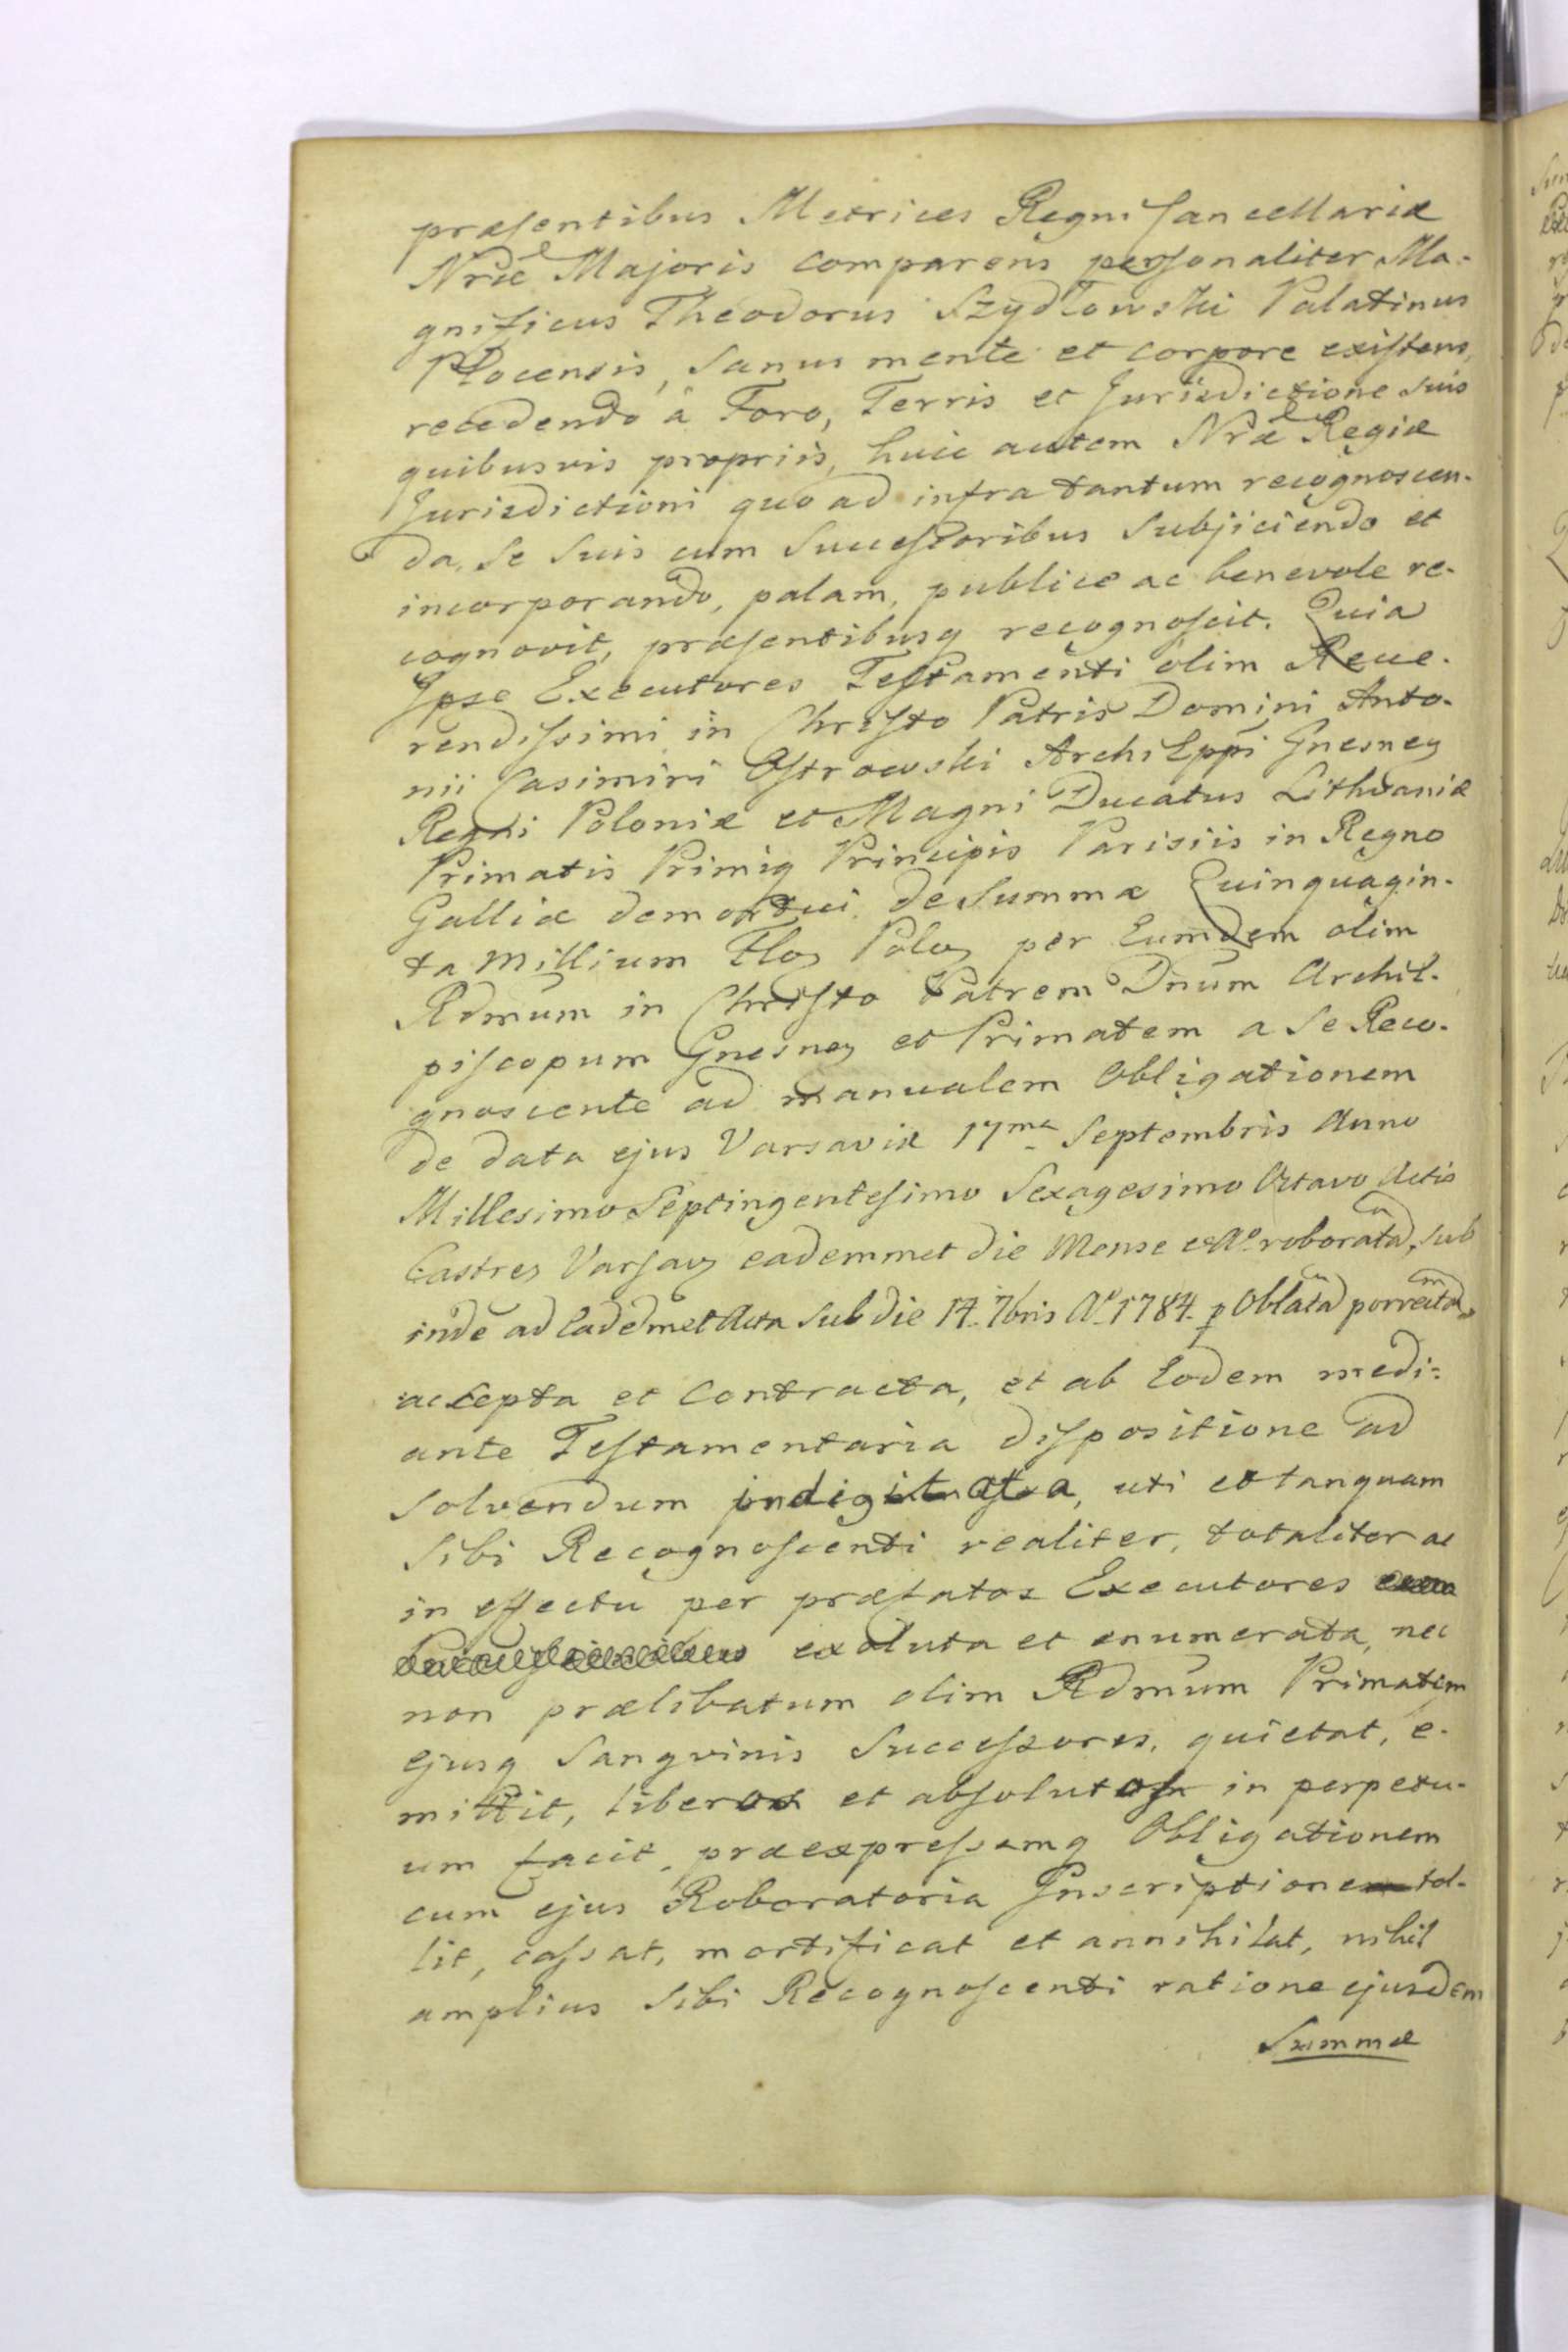 præsentibus Metrices Regni Cancellariæ
Nræ Majoris comparens personaliter Ma-
gnificus Theodorus Szydłowski Palatinus
Płocensis, sanus mente et corpore existens,
recedendo à Foro, Terris et Jurisdictione suis
quibusvis propriis, huic autem Nræ Regiæ
Jurisdictioni quo ad infra tantum recognoscen-
da, se suis cum Successoribus subjiciendo et
incorporando, palam, publice ac benevole re-
cognovit, præsentibusq recognoscit. Quia
Ipse Executores Testamenti olim Reve-
rendissimi in Christo Patris Domini Anto-
nii Casimiri Ostrowski ArchiEppi Gnesnen
Regni Poloniæ et Magni Ducatus Lithvaniæ
Primatis Primiq Principis Parisiis in Regno
Galliæ demortui de Summa Quinquagin-
ta Millium Flor Polon per Eumdem olim
Rdmum in Christo Patrem Dnum Archie-
piscopum Gnesnen et Primatem a Se Reco-
gnoscente ad manualem Obligationem
de data ejus Varsaviæ 17ma Septembris Anno
Millesimo Septingentesimo Sexagesimo Octavo Actis
Castren Varsav eademmet die Mense et Ao roboratam, sub
inde ad Eademmet Acta sub die 14. 7bris Ao 1784. p Oblatam porrectam,
accepta et contracta, et ab Eodem medi-
ante Testamentaria dispositione ad
solvendum indigitata, uti et tanquam
Sibi Recognoscenti realiter, totaliter ac
in effectu per præfatos Executores
exoluta et enumerata, nec
non prælibatum olim Rdmum Primatem
ejusq Sangvinis Successores, quietat, e-
mittit, liberos et absolutos in perpetu-
um facit, præexpressamq Obligationem
cum ejus Roboratoria Inscriptione tol-
lit, cassat, mortificat et annihilat, nihil
amplius Sibi Recognoscenti ratione ejusdem
Summæ